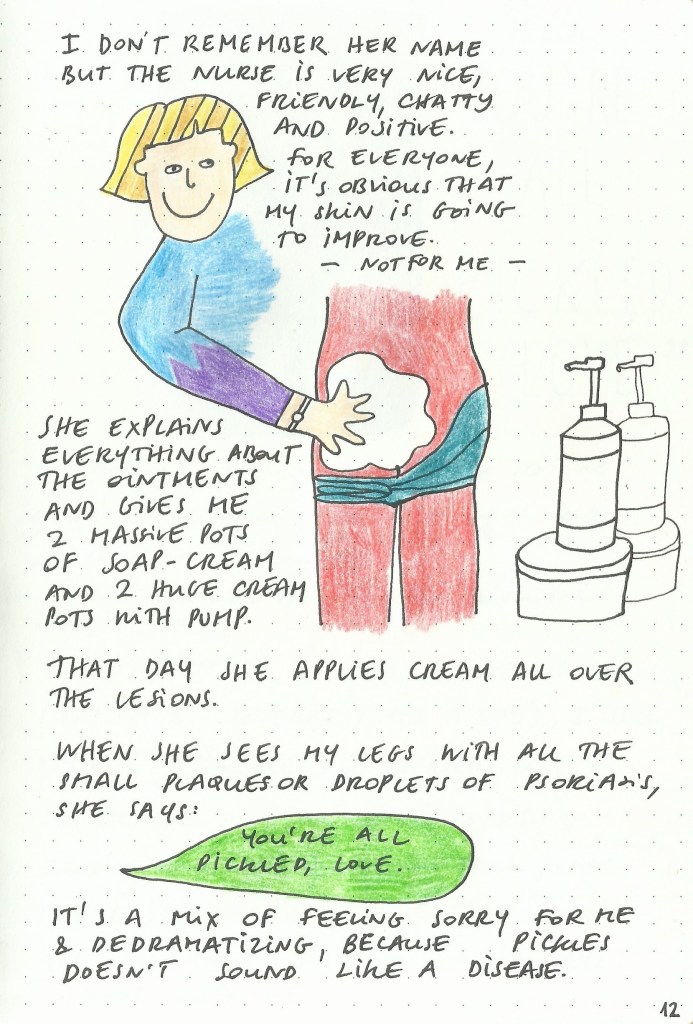 I DON'T REMEMBER HER NAME
BUT THE NURSE IS VERY NICE,
FRIENDLY, CHATTY
AND POSITIVE.
FOR EVERYONE,
IT'S OBVIOUS THAT
MY SKIN IS GOING
TO IMPROVE.
— NOT FOR ME —
SHE EXPLAINS
EVERYTHING ABOUT
THE OINTMENTS
AND GIVES ME
2 MASSIVE POTS
OF SOAP-CREAM
AND 2 HUGE CREAM
POTS WITH PUMP.
THAT DAY SHE APPLIES CREAM ALL OVER
THE LESIONS.
WHEN SHE SEES MY LEGS WITH ALL THE
SMALL PLAQUES OR DROPLETS OF PSORIASIS,
SHE SAYS:
YOU'RE ALL
PICKLED, LOVE.
IT'S A MIX OF FEELING SORRY FOR ME
& DEDRAMATIZING, BECAUSE PICKLES
DOESN'T SOUND LIKE A DISEASE.
12